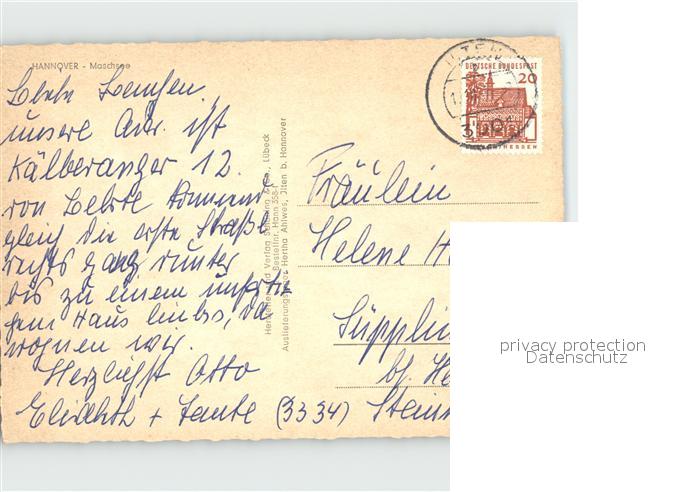 HANNOVER - Maschsee
Liebe
unsere Adr. ist
Kälberanger 12.
von Lehrte kommend
gleich die erste Straße
rechts ganz runter
bis zu einem
Haus links, da
wohnen wir.
Herzlichst Otto
Elisabeth + Tante
Hersteller und Verlag Schöning & Co., Lübeck
Bestellnr. Hann 358
Auslieferungslager Hertha Ahlwes, Ilten b. Hannover
ILTEN
DEUTSCHE BUNDESPOST
20
HESSEN
Fräulein
Helene H
Süpplin
bf. He
(3334) Stein
privacy protection
Datenschutz